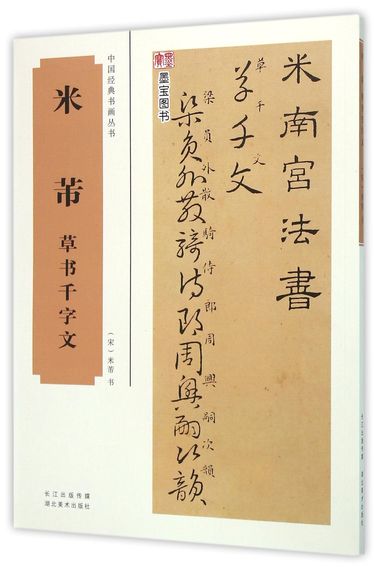 中国经典书画丛书
米芾
草书千字文
（宋）米芾 书
长江出版传媒
湖北美术出版社
墨宝图书
米南宮法書
草千文
草千文
梁員外散騎侍郎周興嗣次韻
梁員外散騎侍郎周興嗣次韻